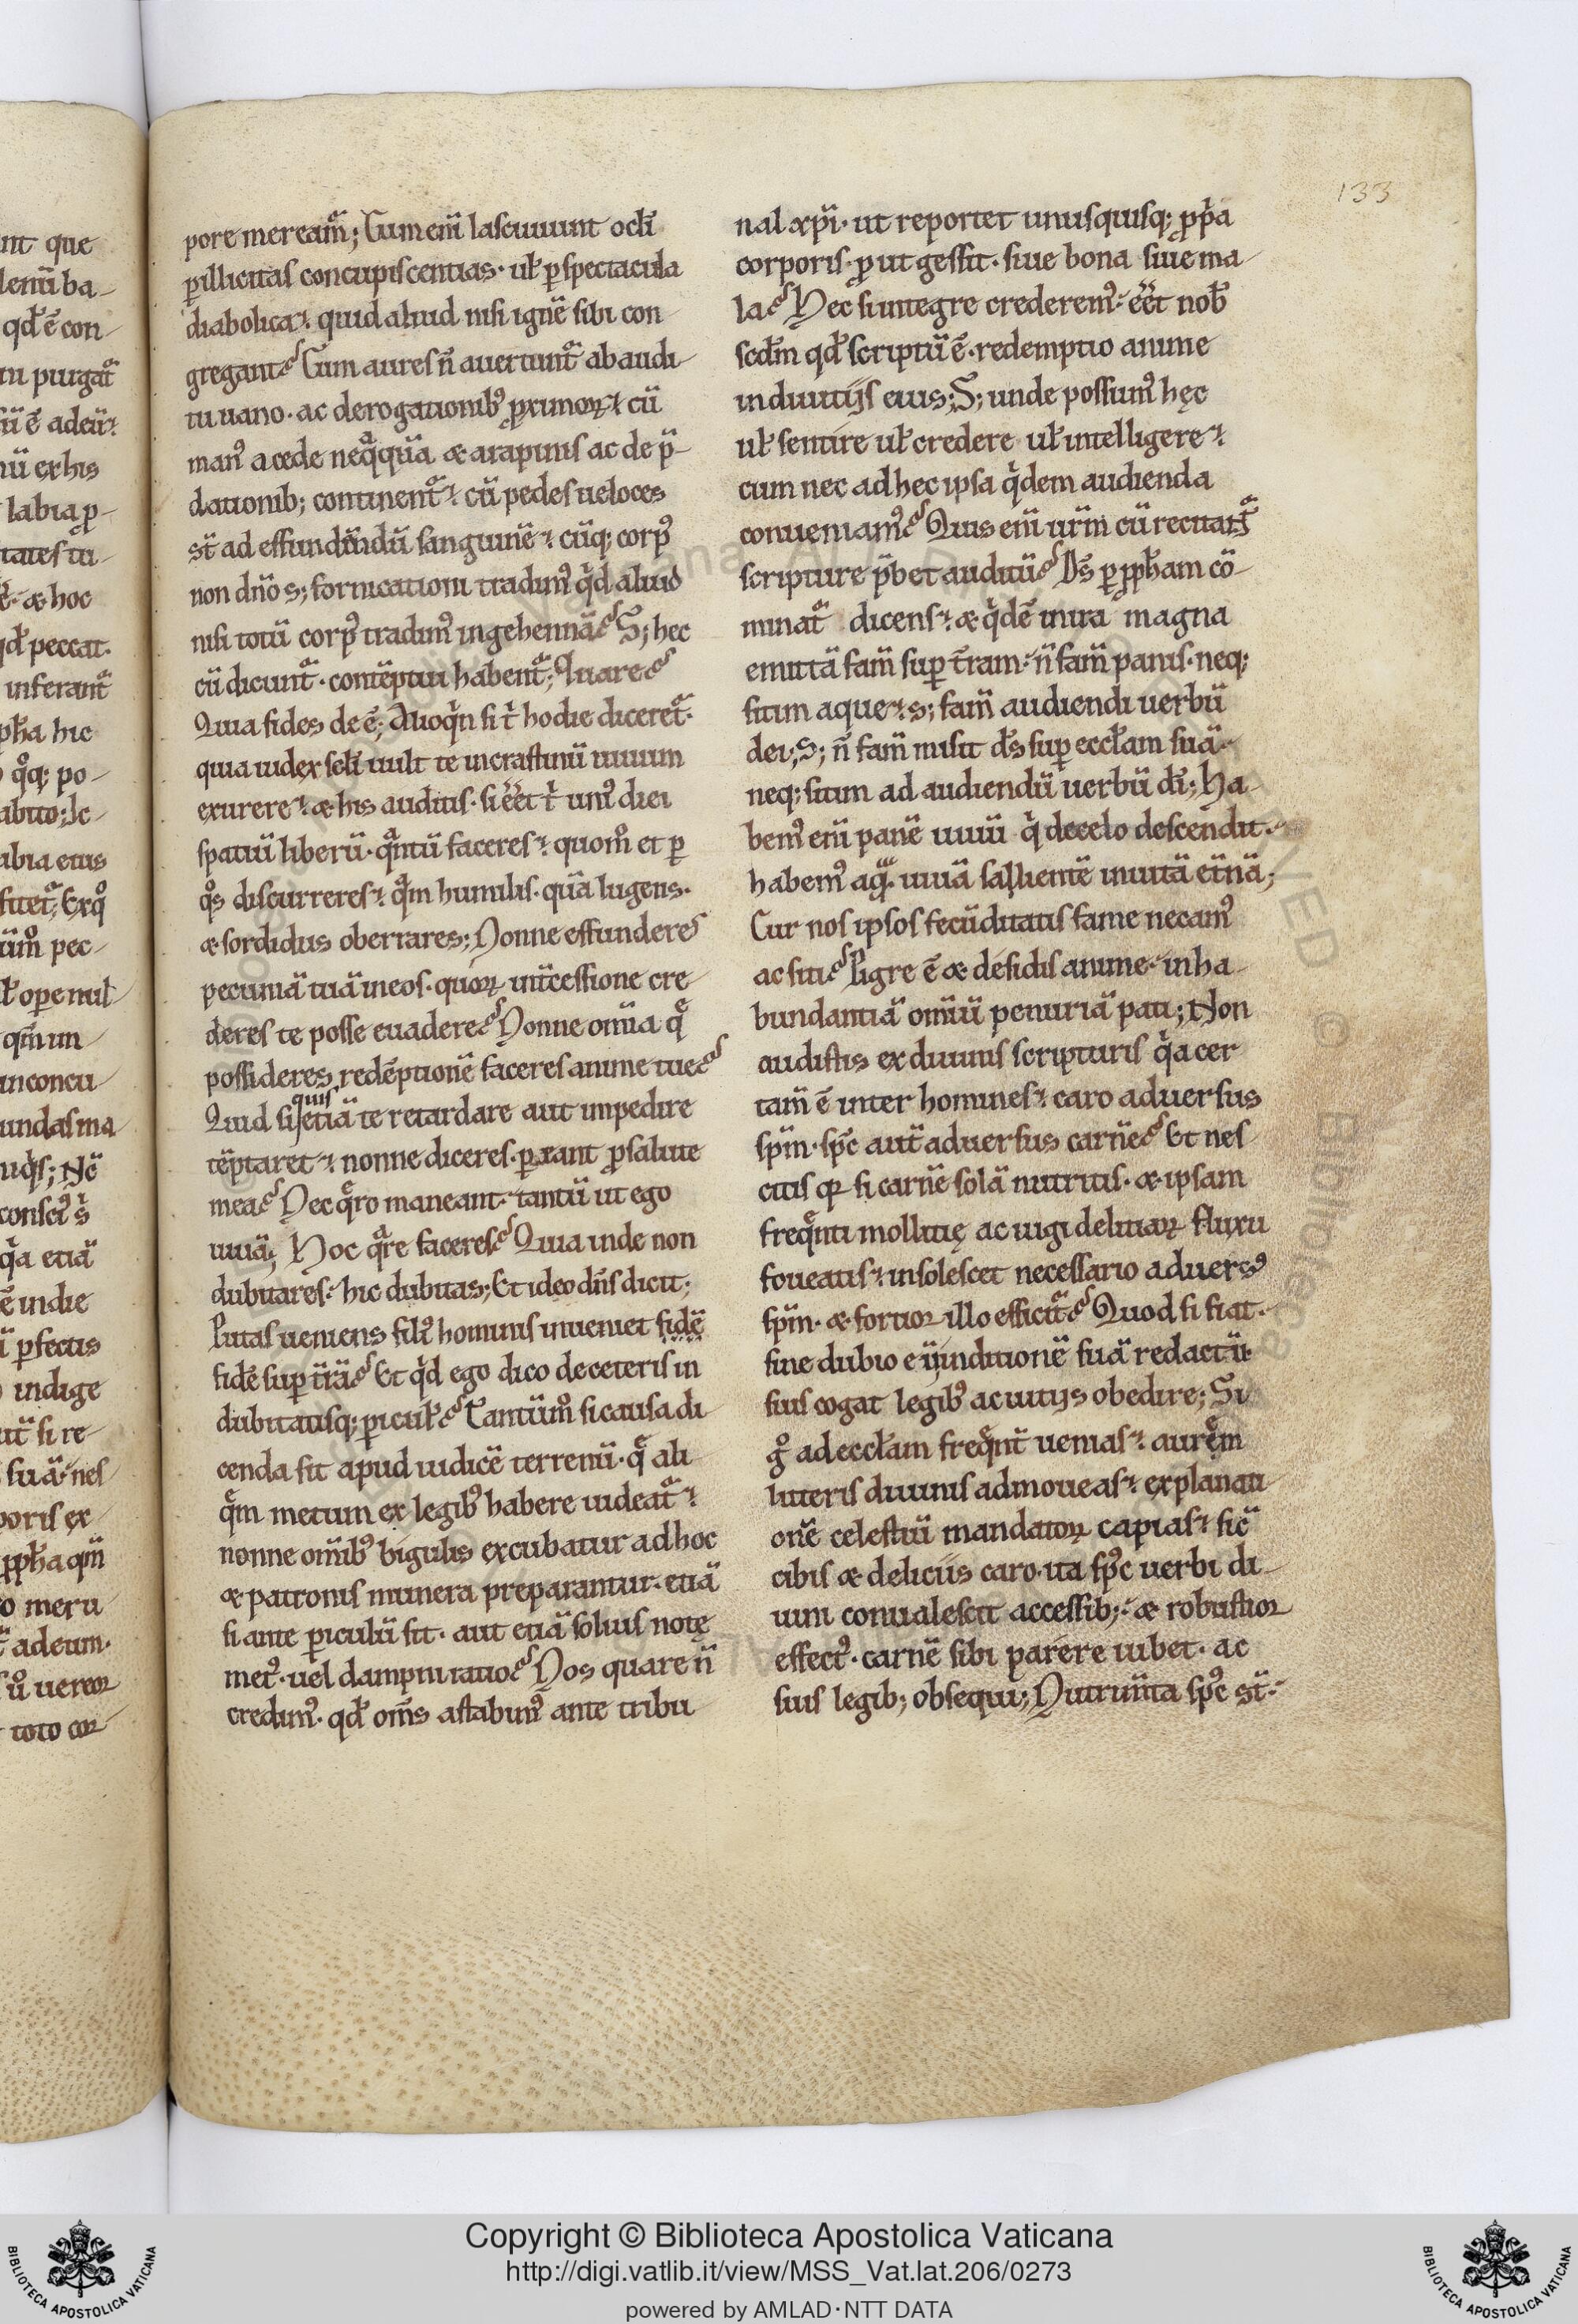 133
pore meream᷑; Cum eni̅ lasciuiunt ocl̅i
ꝑ illicitas concupiscentias· ul̅ ꝑ spectacula
diabolica· quid aliud nisi igne̅ sibi con-
gregant? Cum aures n̅ auertunt᷑ ab audi-
tu uano· ac derogationib᷒ ꝓximoꝝ· cu̅
man᷒ a cede nequaqua̅ & a rapinis ac de p̅-
dationib; continent᷑· cu̅ pedes ueloces
st̅ ad effundendu̅ sanguine̅· cu̅q; corp᷒
non dn̅o s; fornicationi tradim᷒ qͥd aliud
nisi totu̅ corp᷒ tradim᷒ in gehenna̅? S; hec
cu̅ dicunt᷑· conte̅ptui habent᷑; Quare?
Quia fides de e̅; Alioqͥn si tͥ hodie diceret᷑·
quia iudex sc̅li uult te in crastinu̅ uiuum
exurere· & his auditis· si ee̅t tͥ uni᷒ diei
spatiu̅ liberu̅· qᷓntu̅ faceres· quom̊ et ꝑ
qͦs discurreres· qᷓm humilis· qua̅ lugens·
& sordidus oberrares; Nonne effunderes
pecunia̅ tua̅ in eos· quoꝝ int̅cessione cre-
deres te posse euadere? Nonne om̅ia qͤ
possideres rede̅ptione̅ faceres anime tue?
quis
Quid si etia̅ te retardare aut impedire
te̅ptaret· nonne diceres· ꝑeant ꝓ salute
mea? Nec qͤro maneant· tantu̅ ut ego
uiua̅; Hoc qᷓre faceres? Quia inde non
dubitares· hic dubitas; Et ideo dn̅s dicit;
Putas ueniens fili᷒ hominis inueniet fide̅
fide̅ sup t̅ra̅? Et qͥd ego dico de ceteris in
dubitatisq; ꝑicul̅? Tantu̅m̊ si causa di-
cenda sit apud iudice̅ terrenu̅· qͤ ali-
qͤm metum ex legib᷒ habere uideat᷑·
nonne om̅ib᷒ uigiliis excubatur ad hoc
& patronis munera preparantur· etia̅
si ante ꝑiculu̅ sit· aut etia̅ solius notę
met᷒· uel dampnitatio? Nos quare n̅
credim᷒· qd̅ om̅s astabim᷒ ante tribu-
nal xp̅i· ut reportet unusquisq; ꝓpͥa
corporis· ꝓut gessit· siue bona siue ma-
la? Hec si integre crederem᷒· ee̅t nob̅
scd̅m qd̅ scriptu̅ e̅· redemptio anime
in diuitijs eius; S; unde possum᷒ hęc
ul̅ sentire ul̅ credere ul̅ intelligere·
cum nec ad hec ipsa qͥdem audienda
conueniam᷒? Quis eni̅ ur̅m cu̅ recitant᷑
scripture p̅bet auditu̅? Ds̅ ꝑ ꝓph̅am co̅-
minat᷑ dicens· & qͥde̅ in ira magna
emitta̅ fam̅ suꝑ t̅ram· n̅ fam̅ panis· neq;
sitim aque· s; fam̅ audiendi uerbu̅
dei; S; n̅ fam̅ misit ds̅ suꝑ eccl̅am sua̅·
neq; sitim ad audiendu̅ uerbu̅ di̅; Ha-
bem᷒ eni̅ pane̅ uiuu̅ qͥ de celo descendit·
habem᷒ aqᷓ· uiua̅ saliente̅ in uita̅ et̅na̅;
Cur nos ipsos fecu̅ditatis fame necam᷒
ac siti? Pigre e̅ & desidis anime· in ha-
bundantia̅ om̅iu̅ penuria̅ pati; Non
audistis ex diuinis scripturis qͥa cer
tam̅ e̅ inter homines· caro aduersus
sp̅m· sp̅c aut̅ aduersus carne̅? Et nes-
citis qꝛ si carne̅ sola̅ nutritis· & ipsam
freqͤnti mollitię ac iugi delitiaꝝ fluxu
foueatis· insolescet necessario aduers᷒
sp̅m· & fortior illo efficit᷑? Quod si fiat·
sine dubio eu̅ in ditione̅ sua̅ redactu̅
suis cogat legib᷒ ac uitijs obedire; Si
gͦ ad eccl̅am freqͤnt̅ uenias· aurem
litteris diuinis admoueas· explanati-
one̅ celestiu̅ mandatoꝝ capias· sic̅
cibis & deliciis caro· ita sp̅c uerbi di-
uini conualescit accessib;· & robustior
effect᷒· carne̅ sibi parere iubet· ac
suis legib; obsequi; Nutrim̅ta sp̅c st̅·
Copyright © Biblioteca Apostolica Vaticana
http://digi.vatlib.it/view/MSS_Vat.lat.206/0273
powered by AMLAD·NTT DATA